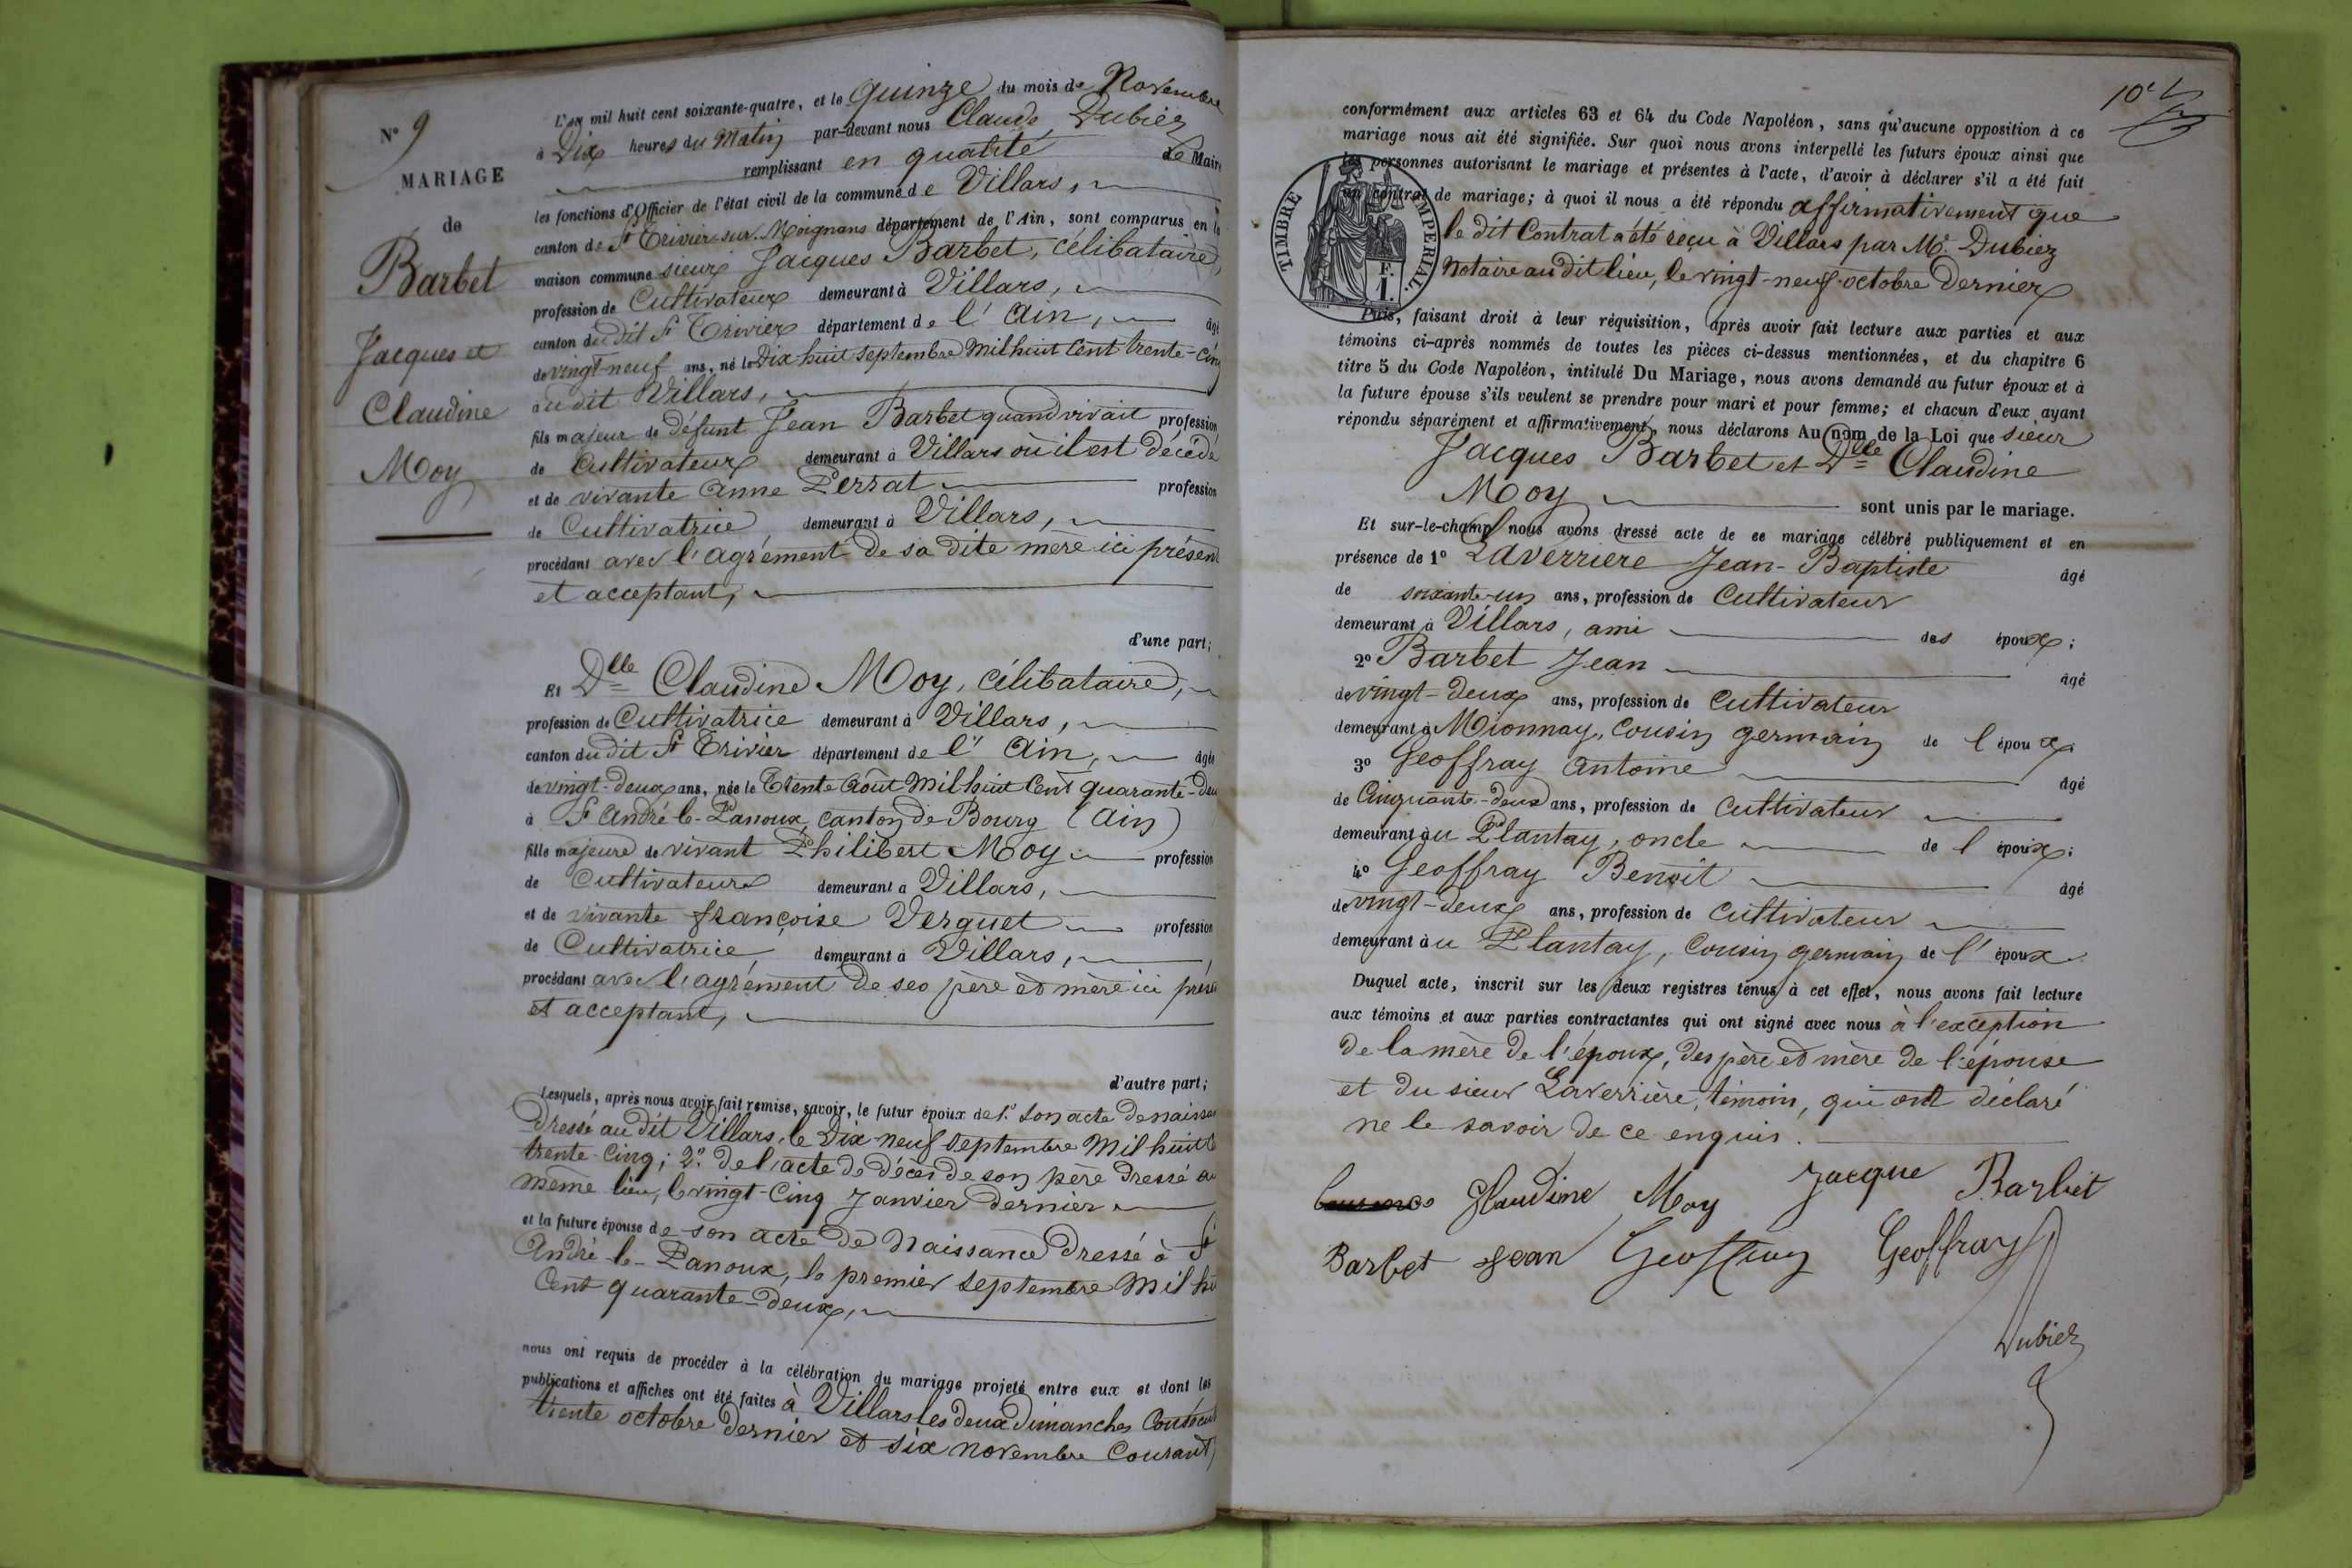 N° 9
MARIAGE
de
Barbet
Jacques et
Claudine
Moy
L'an mil huit cent soixante-quatre, et le quinze du mois de Novembre
à Dix heures du Matin par-devant nous Claude Dubiez
remplissant en qualité de Maire
les fonctions d'Officier de l'état civil de la commune de Villars,
canton de St Trivier sur Moignans département de l'Ain, sont comparus en la
maison commune sieur Jacques Barbet, célibataire,
profession de Cultivateur demeurant à Villars,
canton du dit St Trivier département de l'Ain, âgé
de vingt-neuf ans, né le Dix-huit septembre mil huit Cent trente-cinq
au dit Villars,
fils majeur de défunt Jean Barbet quand vivait profession
de Cultivateur demeurant à Villars où il est décédé
et de vivante Anne Perrat profession
de Cultivatrice demeurant à Villars,
procédant avec l'agrément de sa dite mère ici présent
et acceptant,
d'une part;
Et Dlle Claudine Moy, célibataire,
profession de Cultivatrice demeurant à Villars,
canton du dit St Trivier département de l'Ain, âgée
de vingt-deux ans, née le Trente Août Mil huit Cent quarante-deu
à St André-le-Panoux, canton de Bourg (Ain)
fille majeure de vivant Philibert Moy profession
de Cultivateur demeurant à Villars,
et de vivante françoise Verguet profession
de Cultivatrice, demeurant à Villars,
procédant avec l'agrément de ses père et mère ici prése
et acceptant,
d'autre part;
Lesquels, après nous avoir fait remise, savoir, le futur époux de 1° son acte de naissan
dressé au dit Villars, le Dix-neuf septembre Mil huit C
trente-Cinq; 2° de l'acte de décès de son père dressé au
même lieu, le vingt-Cinq Janvier dernier
et la future épouse de son acte de Naissance dressé à St
André-le-Panoux, le premier septembre Mil hu
Cent quarante-deux,
nous ont requis de procéder à la célébration du mariage projeté entre eux et dont les
publications et affiches ont été faites à Villars les deux Dimanches Consécut
trente octobre dernier et six novembre Courant,
10e
conformément aux articles 63 et 64 du Code Napoléon, sans qu'aucune opposition à ce
mariage nous ait été signifiée. Sur quoi nous avons interpellé les futurs époux ainsi que
les personnes autorisant le mariage et présentes à l'acte, d'avoir à déclarer s'il a été fait
un contrat de mariage; à quoi il nous a été répondu affirmativement que
TIMBRE IMPERIAL.
F.
1.
le dit Contrat a été reçu à Villars par Me Dubiez
Notaire au dit lieu, le vingt-neuf octobre Dernier
Puis, faisant droit à leur réquisition, après avoir fait lecture aux parties et aux
témoins ci-après nommés de toutes les pièces ci-dessus mentionnées, et du chapitre 6
titre 5 du Code Napoléon, intitulé Du Mariage, nous avons demandé au futur époux et à
la future épouse s'ils veulent se prendre pour mari et pour femme; et chacun d'eux ayant
répondu séparément et affirmativement, nous déclarons Au nom de la Loi que sieur
Jacques Barbet et Dlle Claudine
Moy sont unis par le mariage.
Et sur-le-champ nous avons dressé acte de ce mariage célébré publiquement et en
présence de 1° Laverriere Jean-Baptiste âgé
de soixante-un ans, profession de Cultivateur
demeurant à Villars, ami des époux;
2° Barbet Jean âgé
de vingt-deux ans, profession de Cultivateur
demeurant à Mionnay, Cousin germain de l'époux;
3° Geoffray Antoine âgé
de Cinquante-deux ans, profession de Cultivateur
demeurant au Plantay, oncle de l'époux;
4° Geoffray Benoît âgé
de vingt-deux ans, profession de Cultivateur
demeurant au Plantay, Cousin germain de l'époux
Duquel acte, inscrit sur les deux registres tenus à cet effet, nous avons fait lecture
aux témoins et aux parties contractantes qui ont signé avec nous à l'exception
de la mère de l'époux, des père et mère de l'épouse
et du sieur Laverrière, témoin, qui ont déclaré
ne le savoir de ce enquis.
Claudine Moy Jacque Barbet
Barbet Jean Geoffray Geoffray
Dubiez